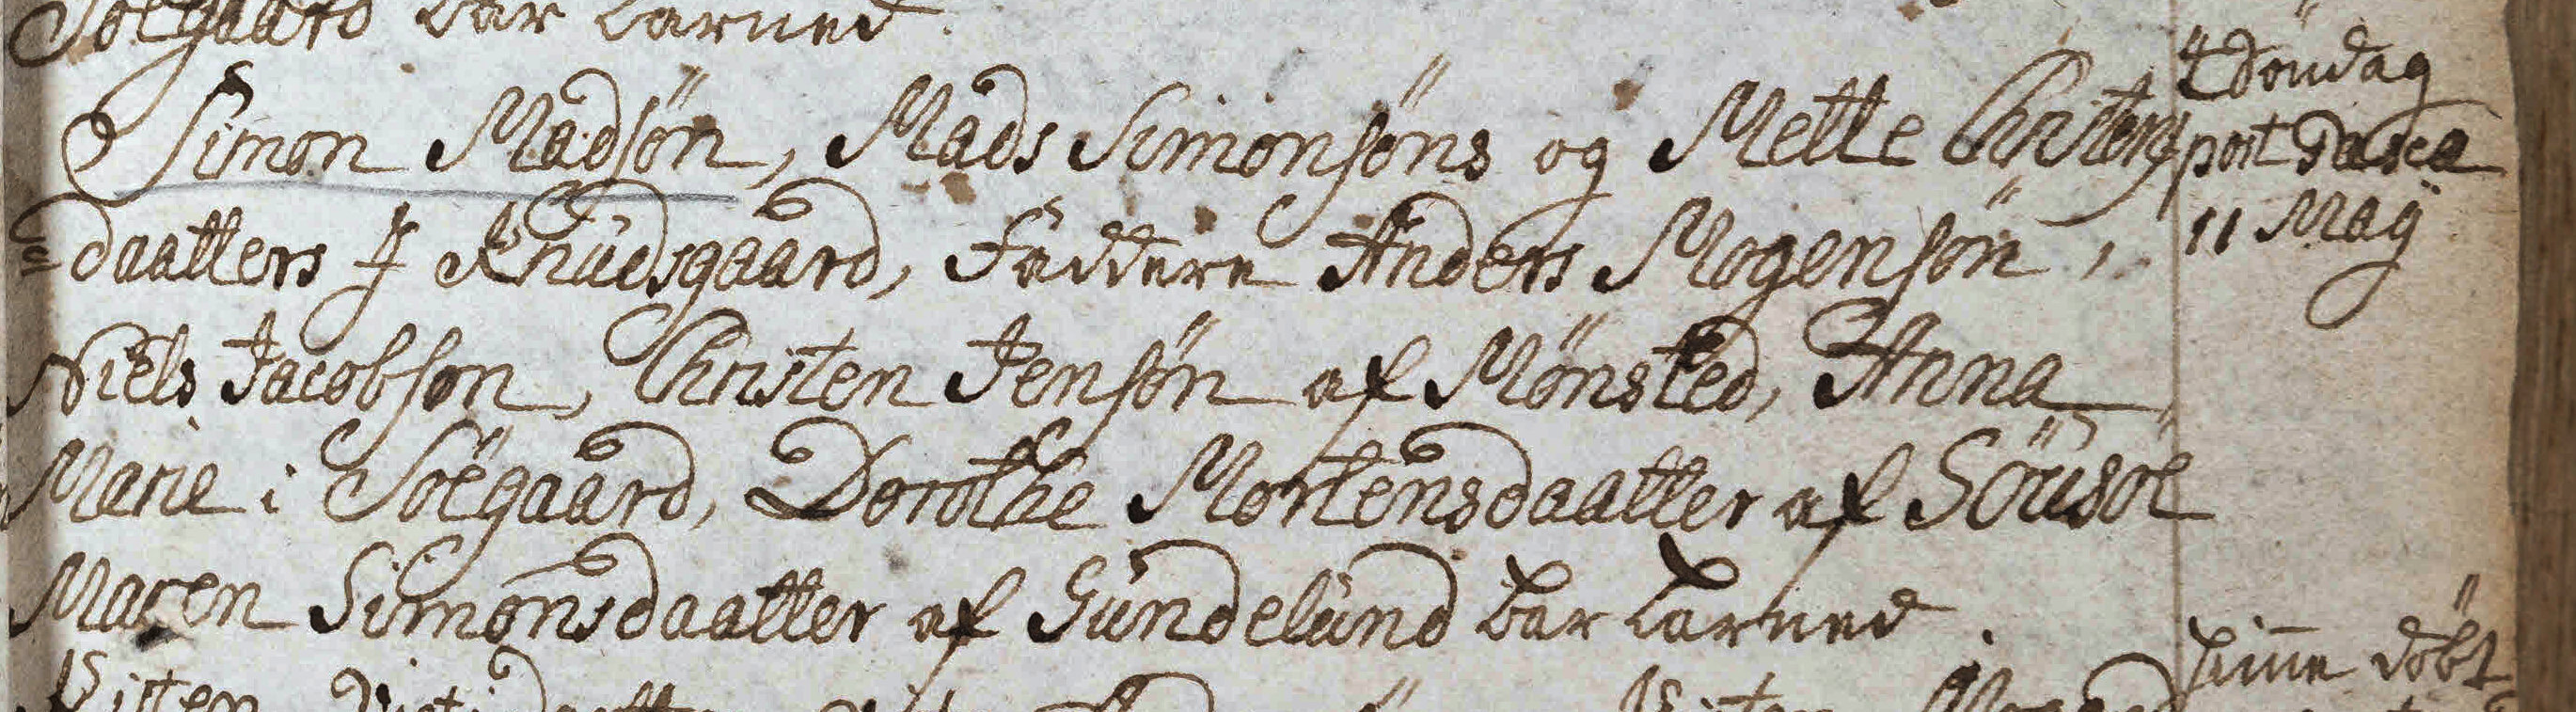 Soegaard bar barned.
Simon Madsön, Mads Simonsöns og Mette Christens
=daatters J Knudsgaard, Faddere Anders Mogensön,
Niels Jacobsön, Christen Jensön af Mönsted, Anna
Marie i Soegaard, Dorothe Mortensdaatter af Söusoe
Maren Simonsdaatter af Gundelund bar barned.
4 Söndag
post Pasca
11 Maÿ
döbt